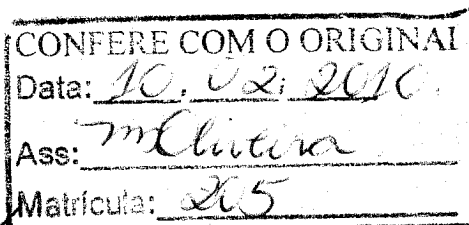 CONFERE COM O ORIGINAL
Data: 10. 02. 2010.
Ass: mOliveira
Matrícula: 205